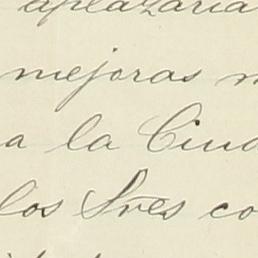 aplazaria
mejoras
a la Ciud
los Sres co